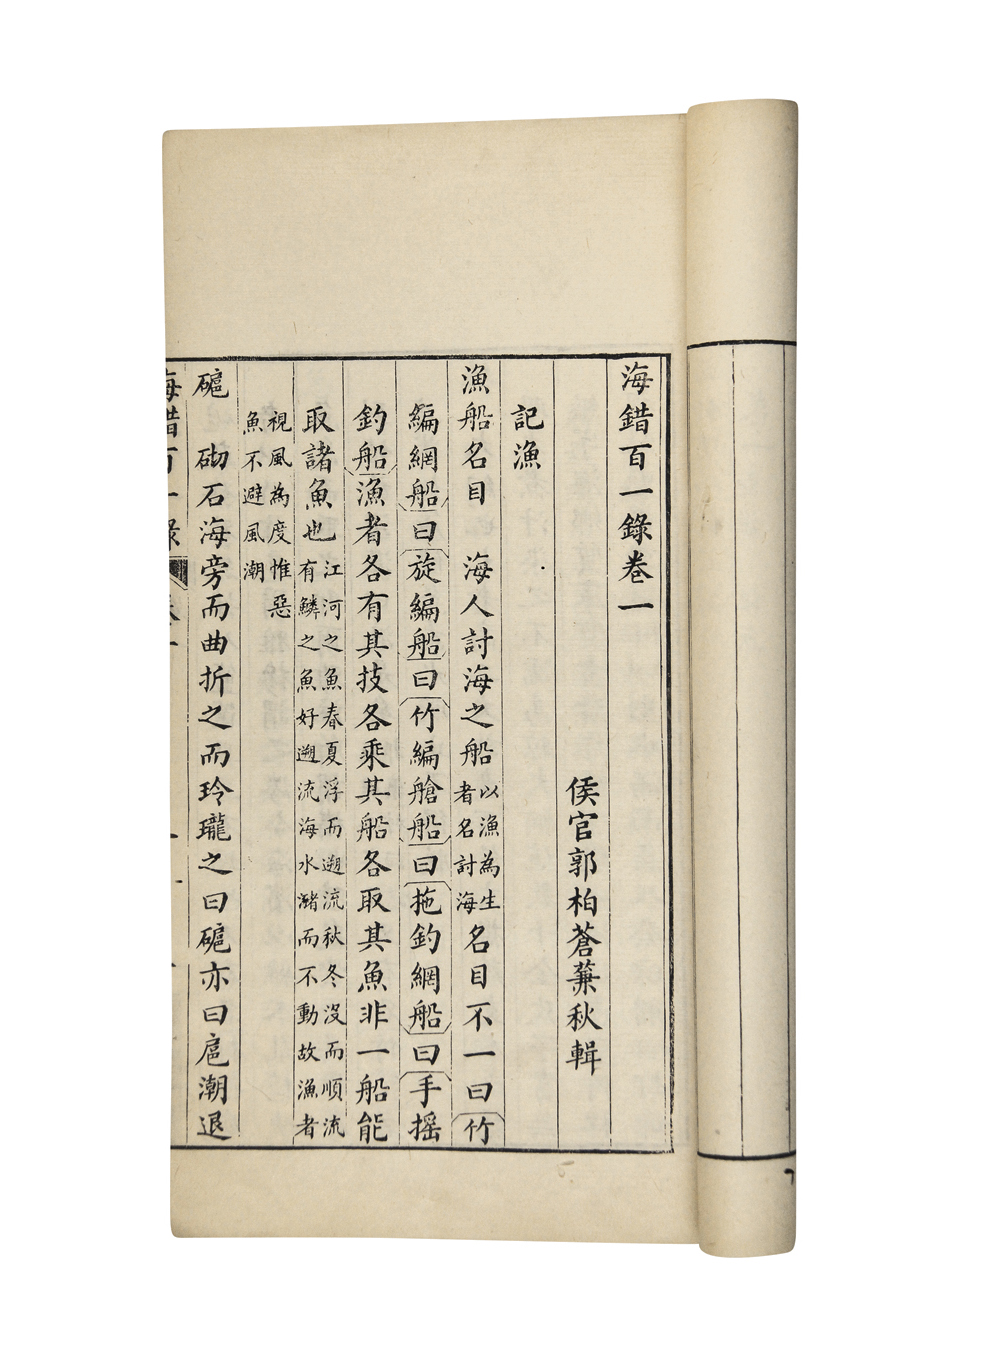 海錯百一錄卷一
侯官郭柏蒼蒹秋輯
記漁
漁船名目　海人討海之船以漁為生者名討海名目不一曰竹
編網船曰旋編船曰竹編艙船曰拖釣網船曰手搖
釣船漁者各有其技各乘其船各取其魚非一船能
取諸魚也江河之魚春夏浮而遡流秋冬沒而順流有鱗之魚好遡流海水瀦而不動故漁者
視風為度惟惡魚不避風潮
䃸　砌石海旁而曲折之而玲瓏之曰䃸亦曰扈潮退
海錯百一錄